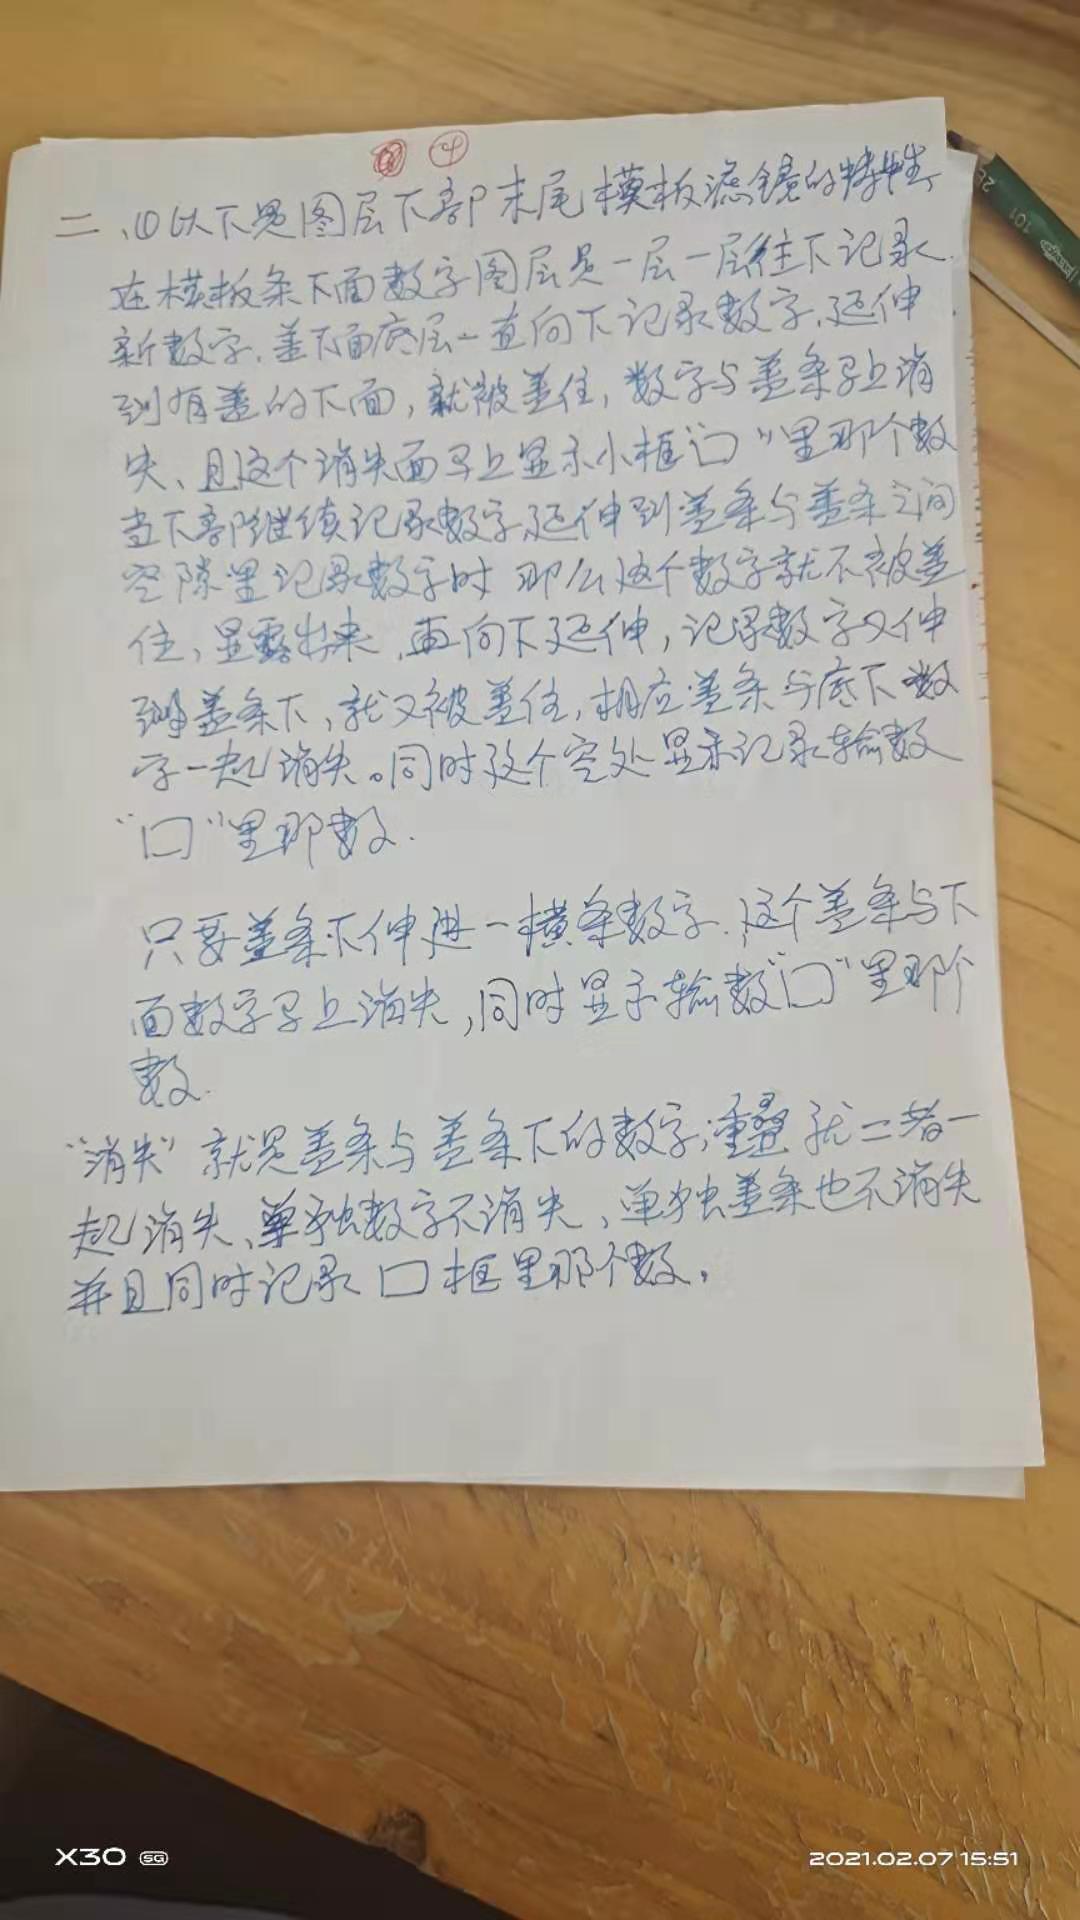 ④
二、①以下是图层下部末尾模板滤镜的特性,
在模板条下面数字图层是一层一层往下记录.
新数字.盖下面底层一直向下记录数字,延伸.
到有盖的下面,就被盖住,数字与盖条马上消
失、且这个消失面马上显示小框“口”里那个数
当下部继续记录数字,延伸到盖条与盖条之间
空隙里记录数字时 那么这个数字就不被盖
住,显露出来,再向下延伸,记录数字又伸
到盖条下,就又被盖住,相应盖条与底下数
字一起消失。同时这个空处显示记录输数
“口”里那数.
只要盖条下伸进一横条数字.这个盖条与下
面数字马上消失,同时显示输数“口”里那个
数.
“消失”就是盖条与盖条下的数字;重叠就二者一
起消失、单独数字不消失、单独盖条也不消失
并且同时记录口框里那个数。
101
X30 5G
2021.02.07 15:51